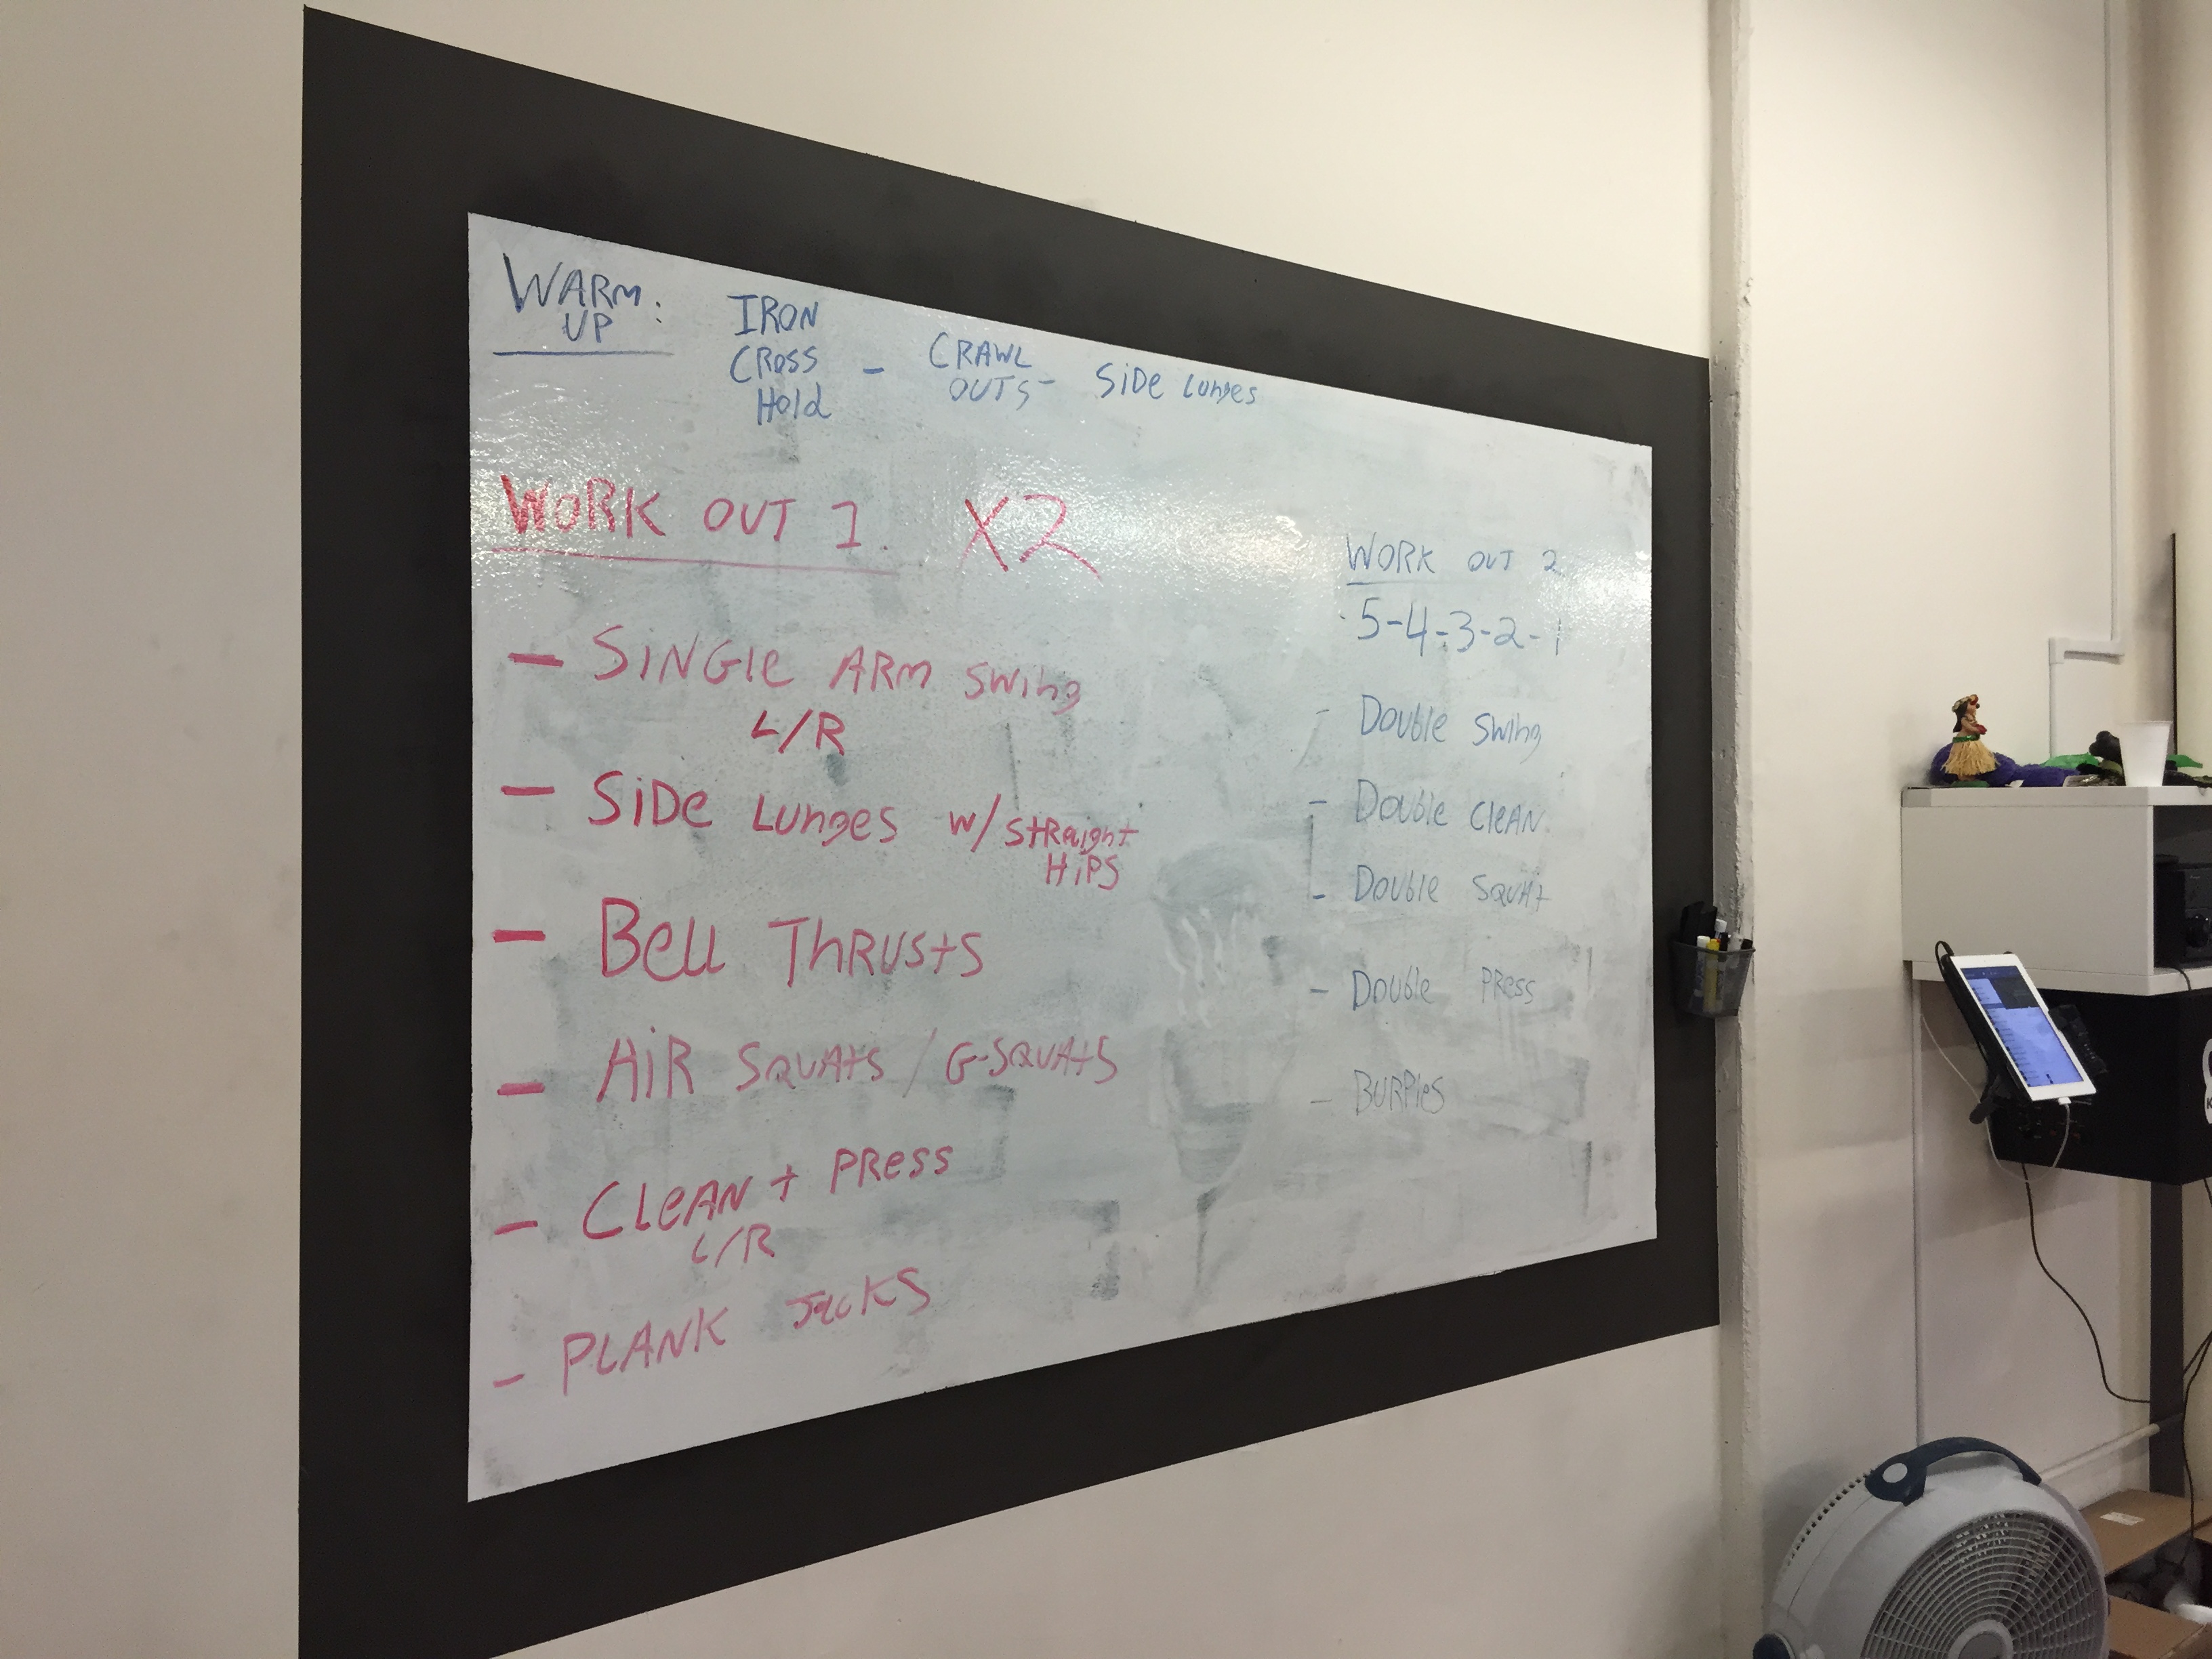 WARM:
UP
IRON
CROSS
Hold
- CRAWL
OUTS -
SiDe Lunges
WORK OUT 1 X2
- SiNGle ARM Swing
L/R
- SiDe Lunges w/ StRaight
HiPS
- Bell ThRUStS
- AiR SQUAtS / G-SQUAtS
- CleAN + PRess
L/R
- PLANK JacKS
WORK OUT 2
5-4-3-2-1
- Double Swing
- Double CleAN
- Double SQUAt
- Double PRess
- BURPieS